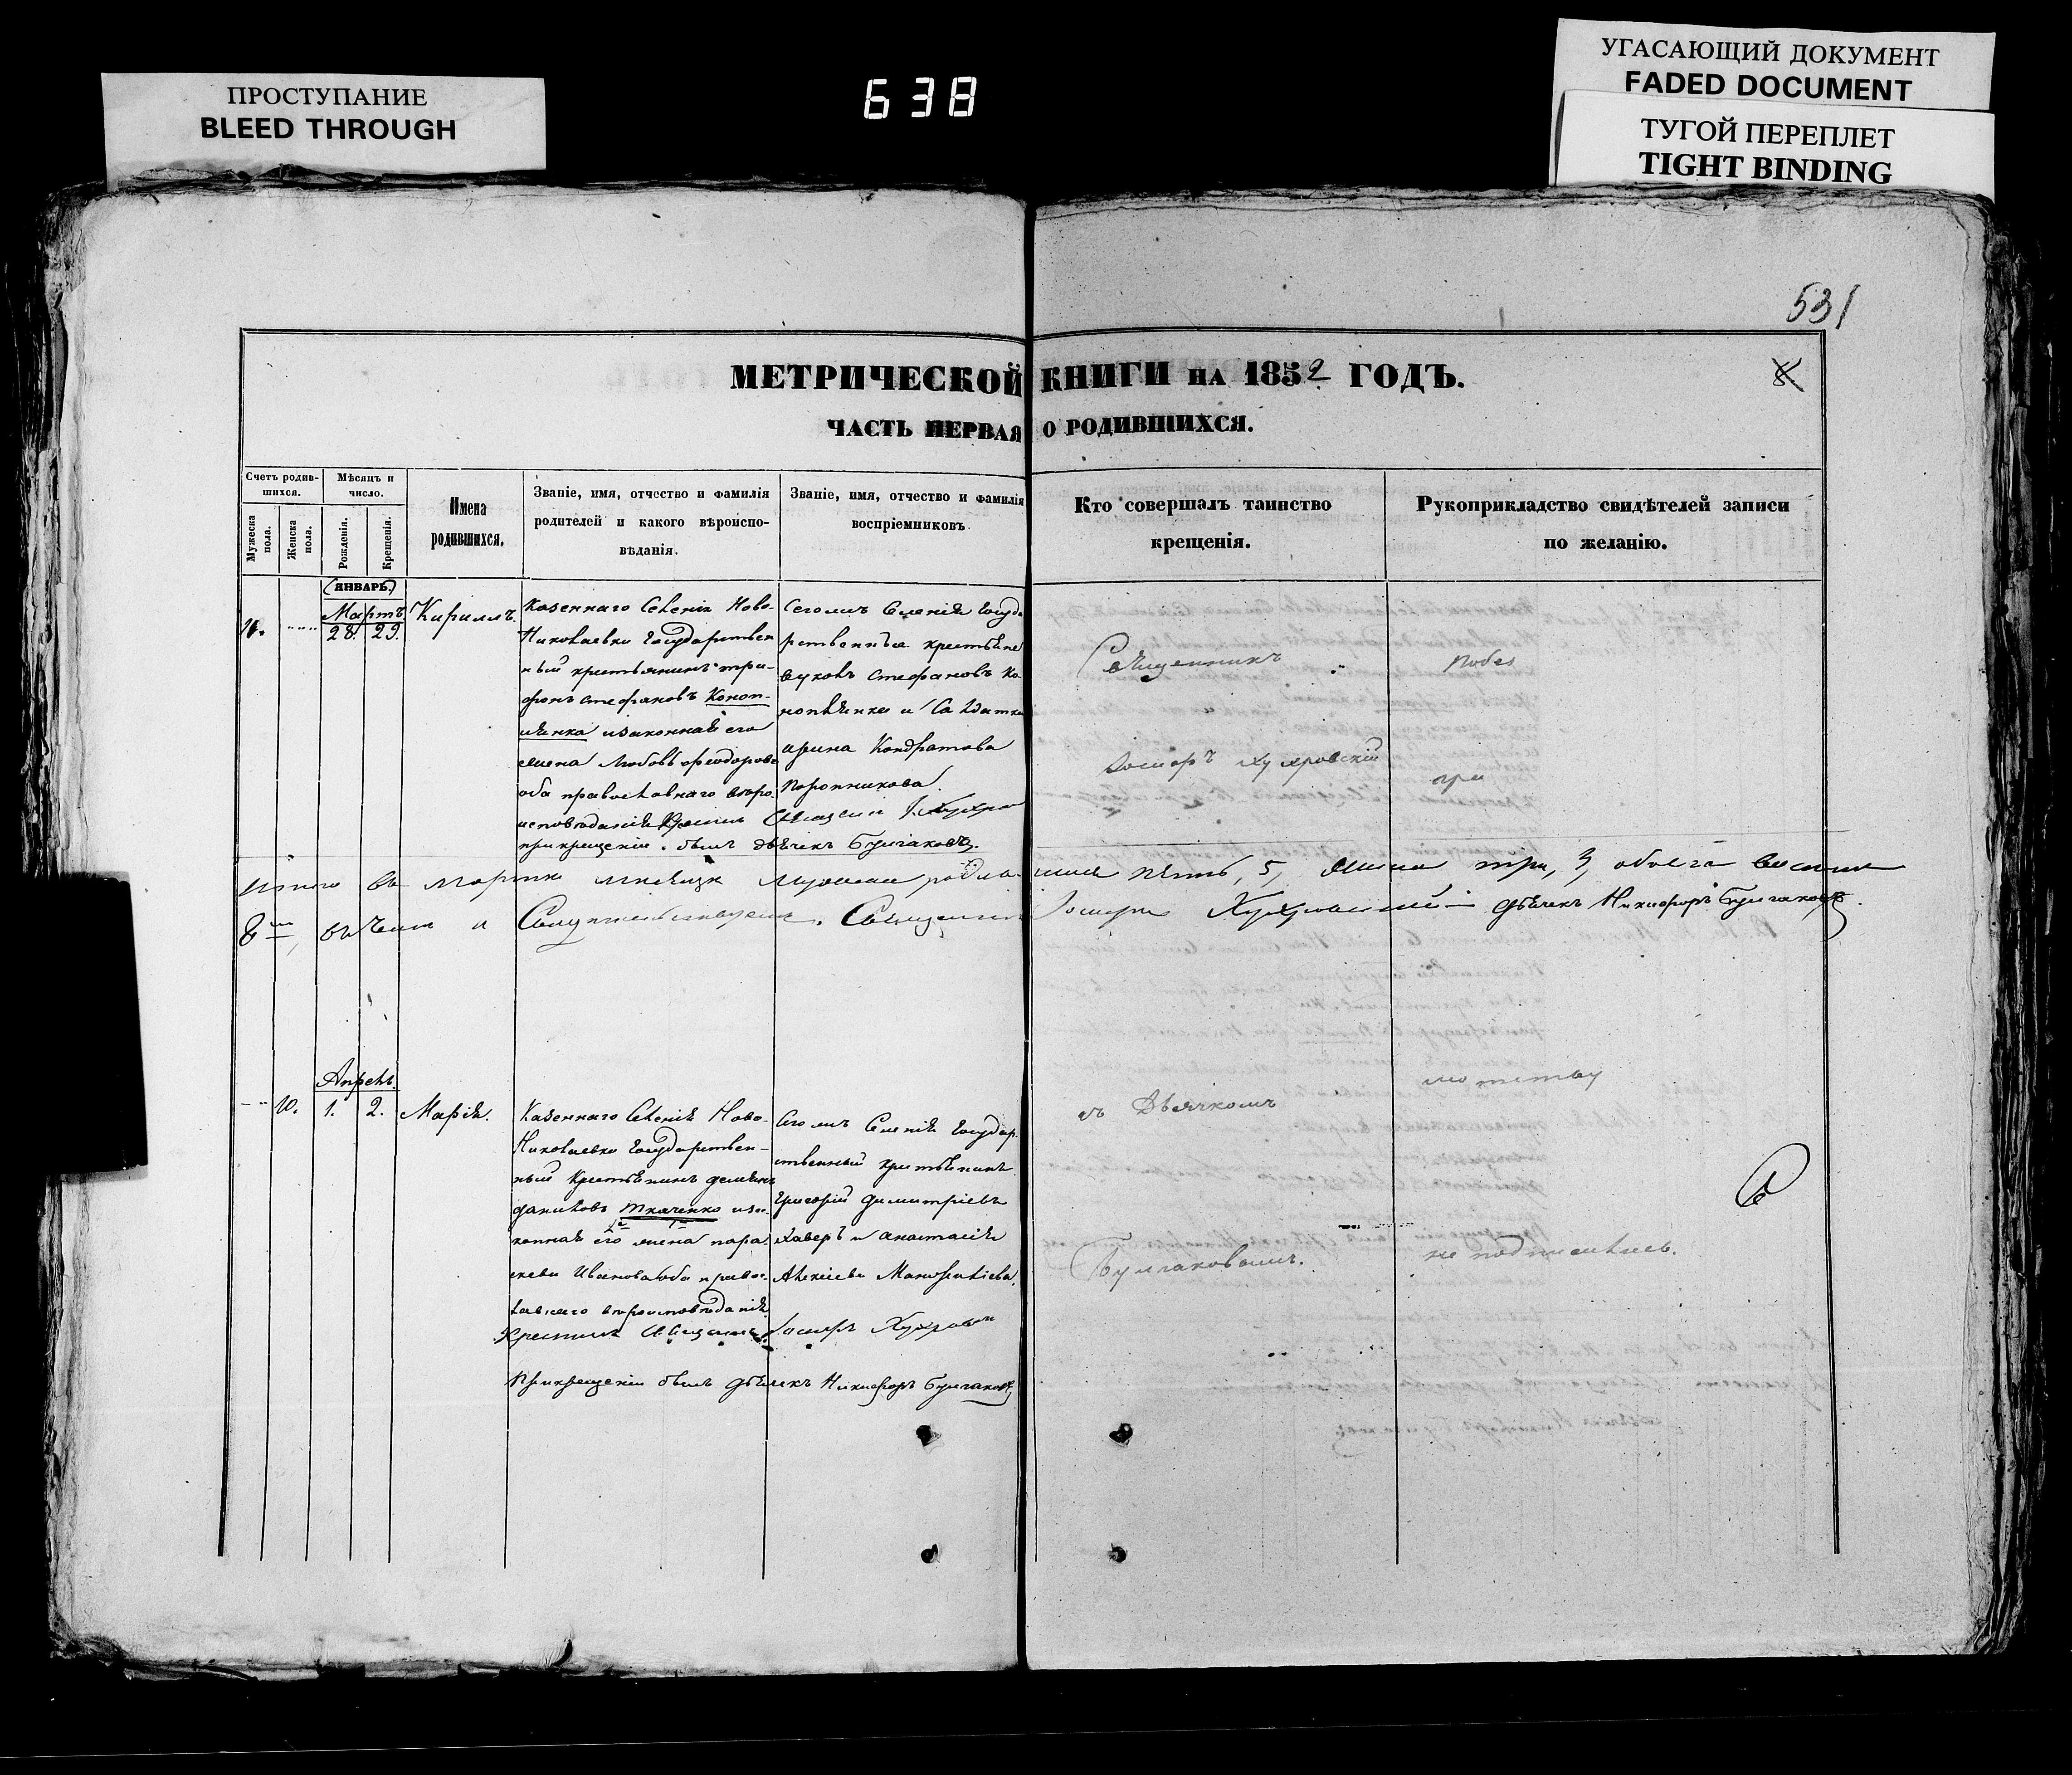 ПРОСТУПАНИЕ
BLEED THROUGH
638
УГАСАЮЩИЙ ДОКУМЕНТ
FADED DOCUMENT
ТУГОЙ ПЕРЕПЛЕТ
TIGHT BINDING
531
МЕТРИЧЕСКОЙ КНИГИ НА 1852 ГОДЪ.
8
ЧАСТЬ ПЕРВАЯ О РОДИВШИХСЯ.
Счетъ родив-
шихся.
Мужеска пола.
Женска пола.
Мѣсяцъ и
число.
Рожденія.
Крещенія.
Имена
родившихся.
Званіе, имя, отчество и фамилія
родителей и какого вѣроиспо-
вѣданія.
Званіе, имя, отчество и фамилія
воспріемниковъ.
Кто совершалъ таинство
крещенія.
Рукоприкладство свидѣтелей записи
по желанію.
ЯНВАРЬ
Мартъ
28. 29.
Кириллъ.
Казеннаго Селенія Ново-
Николаевки Государствен
ный крестьянинъ три-
фонъ стефановъ Коноп-
лянка изаконная его
жена Любовь феодорова
оба православнаго веро
исповѣданія
при крещеніи былъ дьячекъ Булгаковъ.
Сегожъ Селенія Госуда
рственные крестьяне
стефановъ Ко
ноплянка и Салдатка
Кондратова
Поропникова.
Священникъ
Іосифъ Кухровскій
съ Дьячкомъ
Булгаковымъ.
По без
гра
мотству
не подписались.
Итого въ мартѣ месяцѣ мужеска родившихся пять, 5, женска три, 3, обоего восемь
8 Священникъ Іосифъ дьячекъ Никифоръ Булгаковъ.
Апрель.
10. 1. 2. Марія.
Казеннаго Селенія Ново-
Николаевки Государствен-
ный Крестьянинъ
даниловъ Ткаченко иза-
конная его жена пара-
скева Иванова оба право-
славнаго вероисповѣданія
Крестилъ Священникъ Іосифъ
При крещеніи былъ дьячекъ Никифоръ Булгаковъ
Сегожъ Селенія Государ-
ственный крестьянинъ
Григорій димитріевъ
и анастасія
Алексіева